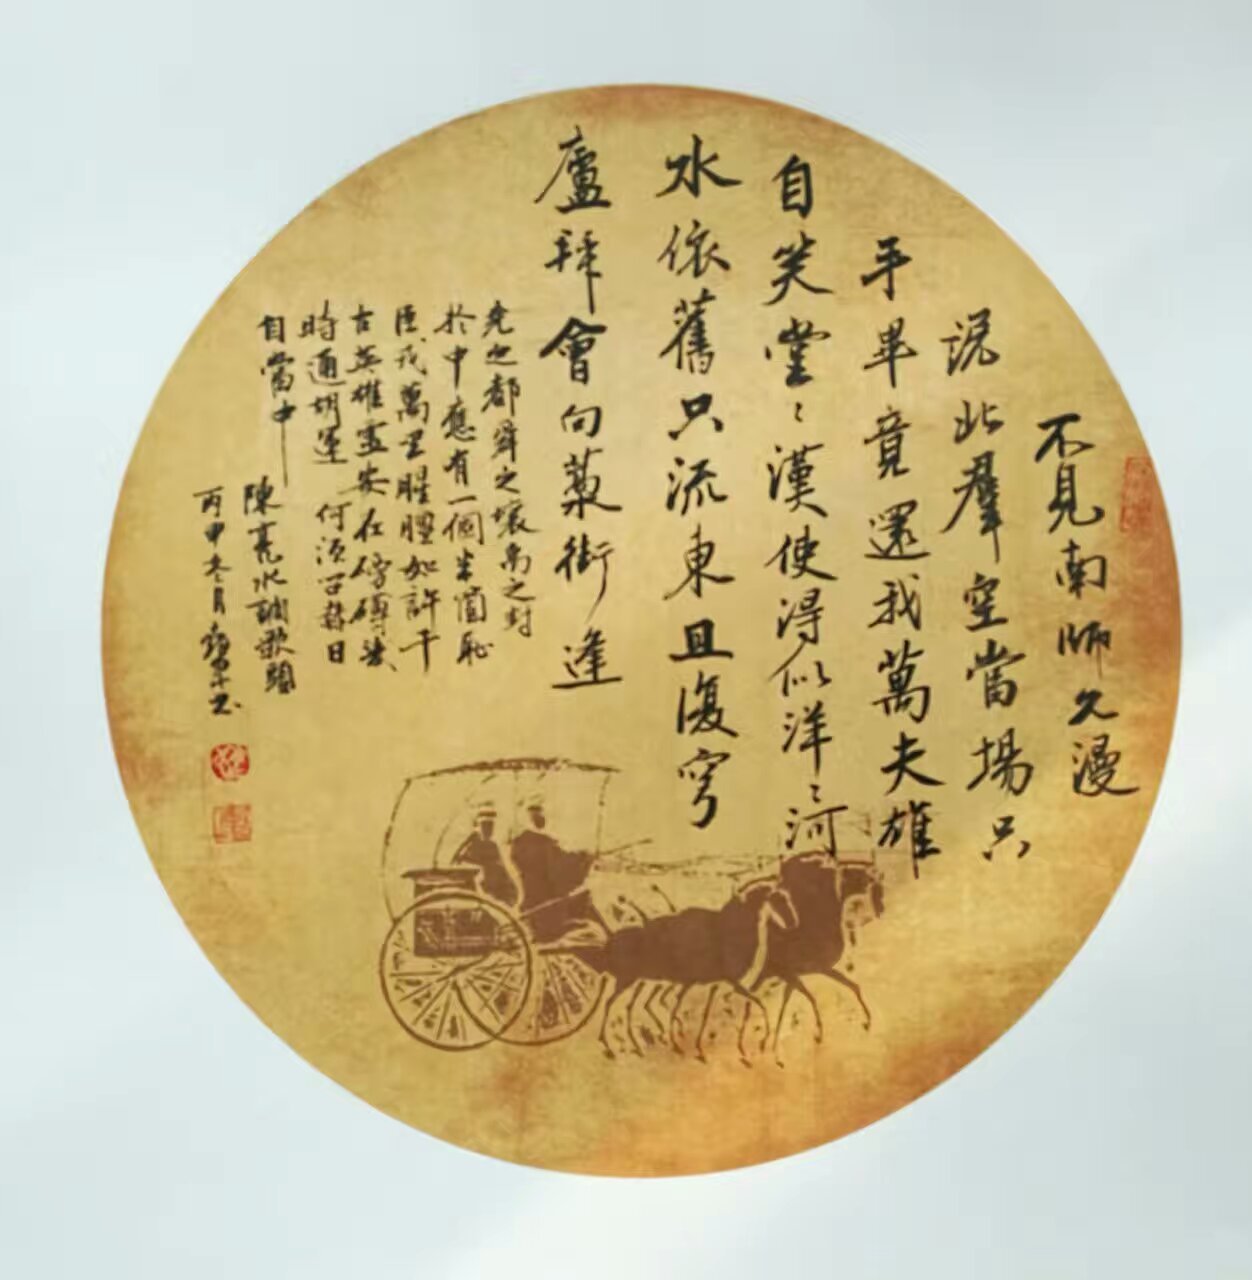 不見南師久漫
說北羣空當場只
手畢竟還我萬夫雄
自笑堂〻漢使得似洋〻河
水依舊只流東且復穹
廬拜會向藁街逢
堯之都舜之壤禹之封
於中應有一個半箇恥
臣戎萬里腥膻如許千
古英雄靈安在磅礴幾
時通胡運何須問赫日
自當中
陳亮水調歌頭
丙申冬月